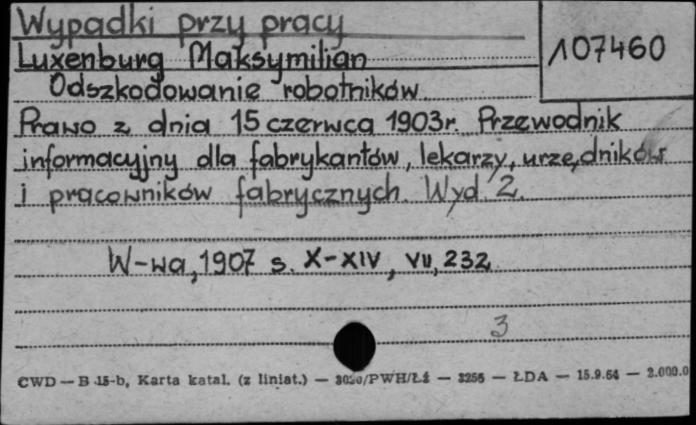 Wypadki przy pracy
107460
Luxenburg Maksymilian
Odszkodowanie robotników.
Prawo z dnia 15 czerwca 1903r. Przewodnik
informacyjny dla fabrykantów, lekarzy, urzędników
i pracowników fabrycznych. Wyd. 2.
W-wa, 1907 s. X-XIV, VII, 232
3
CWD — B 15-b, Karta katal. (z liniat.) — 3030/PWH/Łź — 3256 — ŁDA — 15.9.64 — 2.000.0